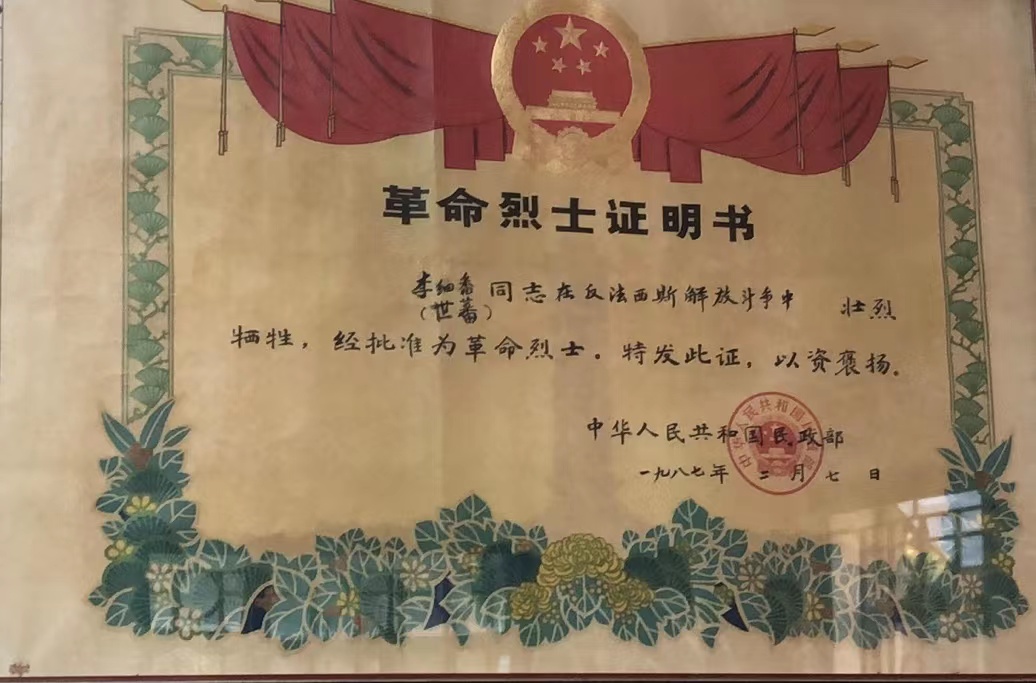 革命烈士证明书
李细番同志在反法西斯解放斗争中 壮烈
（世蕃）
牺牲，经批准为革命烈士。特发此证，以资褒扬。
中华人民共和国民政部
一九八七年 二 月 七 日